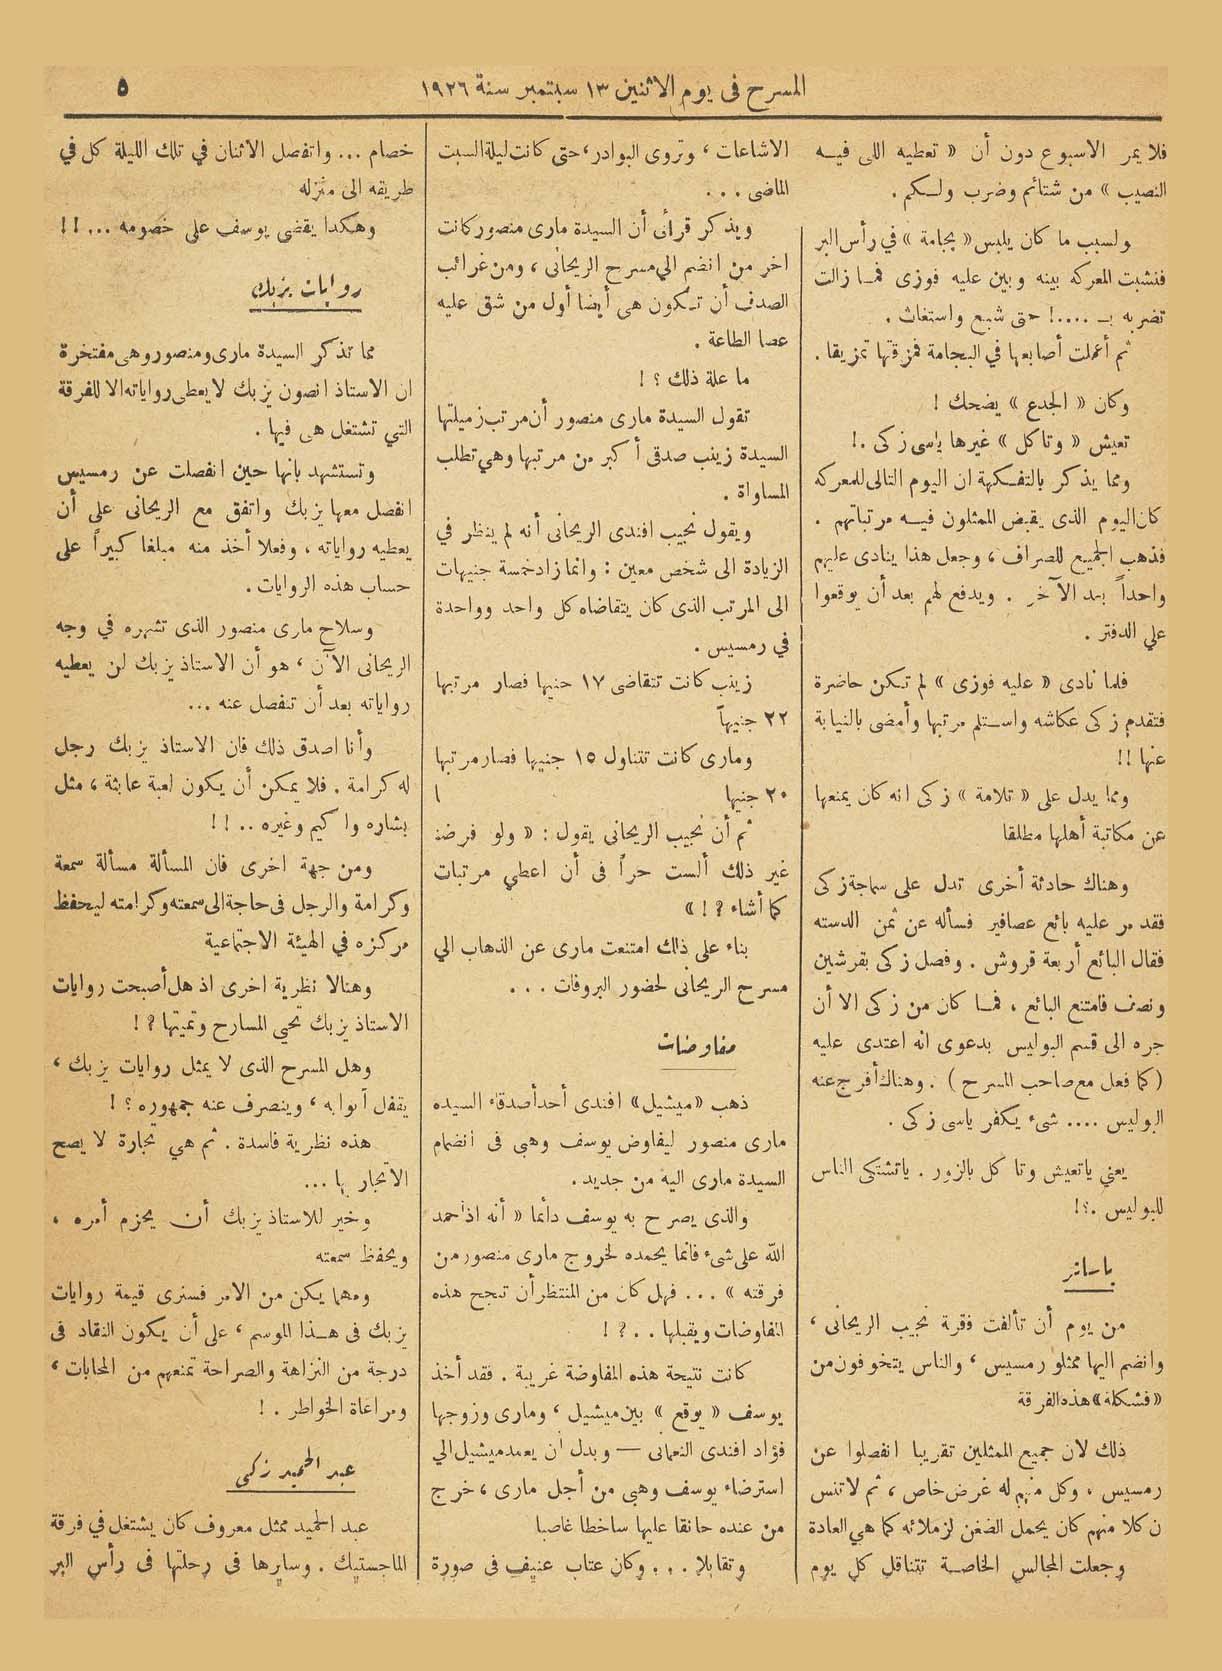 المسرح فى يوم الاثنين ١٣ سبتمبر سنة ١٩٢٦
٥
فلا يمر الاسبوع دون أن « تعطيه اللى فيـه
النصيب » من شتائم وضرب ولـكم .
ولسبب ما كان يلبس « بجامة » في رأس البر
فنشبت المعركه بينه وبين عليه فوزى فمـا زالت
تضربه بـ ....! حتى شبع واستغاث .
ثم أعملت أصابعها في البجامة فمزقتها تمزيقا .
وكان « الجدع » يضحك !
تعيش « وتاكل » غيرها ياسى زكى .!
ومما يذكر بالتفـكهة ان اليوم التالى للمعركه
كان اليوم الذى يقبض الممثلون فيـه مرتباتهم .
فذهب الجميع للصراف ، وجعل هذا ينادى عليهم
واحداً بعد الآخر . ويدفع لهم بعد أن يوقعوا
علي الدفتر .
فلما نادى « عليه فوزى » لم تـكن حاضرة
فتقدم زكى عكاشه واسـتلم مرتبها وأمضى بالنيابة
عنها !!
ومما يدل على « تلامة » زكى انه كان يمنعها
عن مكاتبة أهلها مطلقا
وهناك حادثة أخرى تدل على سماجة زكى
فقد مر عليه بائع عصافير فسأله عن ثمن الدسته
فقال البائع أربعة قروش . وفصل زكى بقرشين
ونصف فامتنع البائع ، فمـا كان من زكى الا أن
جره الى قسم البوليس بدعوى انه اعتدى عليه
( كما فعل مع صاحب المسرح ) . وهناك أفرج عنه
البوليس .... شىء يكفر ياسى زكى .
يعني ياتعيش وتا كل بالزور . ياتشتكى الناس
للبوليس .؟!
باسائر
من يوم أن تألفت فقرة نجيب الريحانى ،
وانضم اليها ممثلو رمسيس ، والناس يتخوفون من
« فشكلة » هذه الفرقة
ذلك لان جميع الممثلين تقريبا انفصلوا عن
رمسيس ، وكل منهم له غرض خاص ، ثم لاتنس
ن كلا منهم كان يحمل الضغن لزملائه كما هي العادة
وجعلت المجالس الخاصـة تتناقل كل يوم
الاشاعات ، وتروى البوادر، حتى كانت ليلة السبت
الماضى . . .
ويذكر قرأنى أن السيدة مارى منصور كانت
اخر من انضم الي مسرح الريحانى ، ومن غرائب
الصدف أن تـكون هى أيضا أول من شق عليه
عصا الطاعة .
ما علة ذلك ؟ !
تقول السيدة مارى منصور أن مرتب زميلتها
السيدة زينب صدقى أكبر من مرتبها وهي تطلب
المساواة .
ويقول نجيب افندى الريحانى أنه لم ينظر في
الزيادة الى شخص معين : وانما زاد خمسة جنيهات
الى المرتب الذى كان يتقاضاه كل واحد وواحدة
في رمسيس .
زينب كانت تتقاضى ١٧ جنيها فصار مرتبها
٢٢ جنيهاً
ومارى كانت تتناول ١٥ جنيها فصار مرتبها
٢٠ جنيها ا
ثم أن نجيب الريحانى يقول : « ولو فرضنا
غير ذلك ألست حراً فى أن اعطي مرتبات
كما أشاء ؟ ! »
بناء على ذلك امتنعت مارى عن الذهاب الي
مسرح الريحانى لحضور البروفات . . .
مفاوضات
ذهب «ميشيل» افندى أحد أصدقاء السيده
مارى منصور ليفاوض يوسف وهبى فى انضمام
السيدة مارى اليه من جديد .
والذى يصرح به يوسف دائما « أنه اذ أحمد
الله على شىء فانما يحمده لخروج مارى منصور من
فرقته » ... فهل كان من المنتظر أن تنجح هذه
المفاوضات ويقبلها . . ؟ !
كانت نتيجة هذه المفاوضة غريبة . فقد أخذ
يوسف « يوقع » بين ميشيل ، ومارى وزوجها
فؤاد افندى النعمانى — وبدل ان يعمد ميشيل الي
استرضاء يوسف وهبى من أجل مارى ، خرج
من عنده حانقا عليها ساخطا غاصبا
وتقابلا . . . وكان عتاب عنيف فى صورة
خصام ... واتفصل الاثنان في تلك الليلة كل في
طريقه الى منزله
وهكدا يقضى يوسف على خصومه ... !!
روايات يزبك
مما تذكر السيدة مارى ومنصور وهى مفتخرة
ان الاستاذ انصون يزبك لا يعطى رواياته الا للفرقة
التي تشتغل هى فيها .
وتستشهد بانها حين انفصلت عن رمسيس
انفصل معها يزبك واتفق مع الريحانى على أن
يعطيه رواياته ، وفعلا أخذ منه مبلغا كبيراً على
حساب هذه الروايات .
وسلاح مارى منصور الذى تشهره في وجه
الريحانى الآن ، هو أن الاستاذ يزبك لن يعطيه
رواياته بعد أن تنفصل عنه ...
وأنا اصدق ذلك فان الاستاذ يزبك رجل
له كرامة . فلا يمكن أن يكون لعبة عابثة ، مثل
بشاره واكيم وغيره .. !!
ومن جهة اخرى فان المسألة مسألة سمعة
وكرامة والرجل فى حاجة الى سمعته وكرامته ليحفظ
مركزه في الهيئة الاجتماعية
وهنالا نظرية اخرى اذ هل أصبحت روايات
الاستاذ يزبك تحيي المسارح وتميتها ؟ !
وهل المسرح الذى لا يمثل روايات يزبك ،
يقفل أبوابه ، وينصرف عنه جمهوره ؟ !
هذه نظرية فاسدة . ثم هي تجارة لا يصح
الاتجار بها ...
وخير للاستاذ يزبك أن يحزم أمره ،
ويحفظ سمعته
ومهما يكن من الامر فسنرى قيمة روايات
يزبك فى هـذا الموسم ، على أن يكون النقاد فى
درجة من النزاهة والصراحة تمنعهم من المحابات ،
ومراعاة الخواطر . !
عبد الحميد زكى
عبد الحميد ممثل معروف كان يشتغل في فرقة
الماجستيك . وسايرها فى رحلتها فى رأس البر